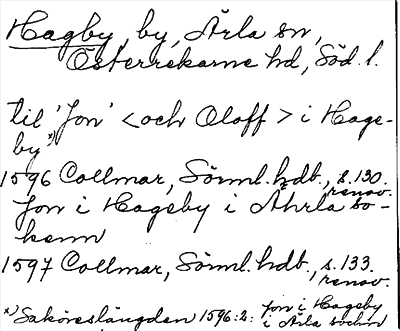 Hagby, by, Ärla sn,
Österrekarne hd, Söd. l.
til 'Jon' <och Oloff> i Hage-
by*)
1596 Collmar, Sörml. hdb., s. 130.
renov.
Jon i Hageby i Åhrla so-
kenn
1597 Collmar, Sörml. hdb., s. 133.
renov.
*) Saköreslängden 1596:2: Jon i Hageby
i Ärla sochn